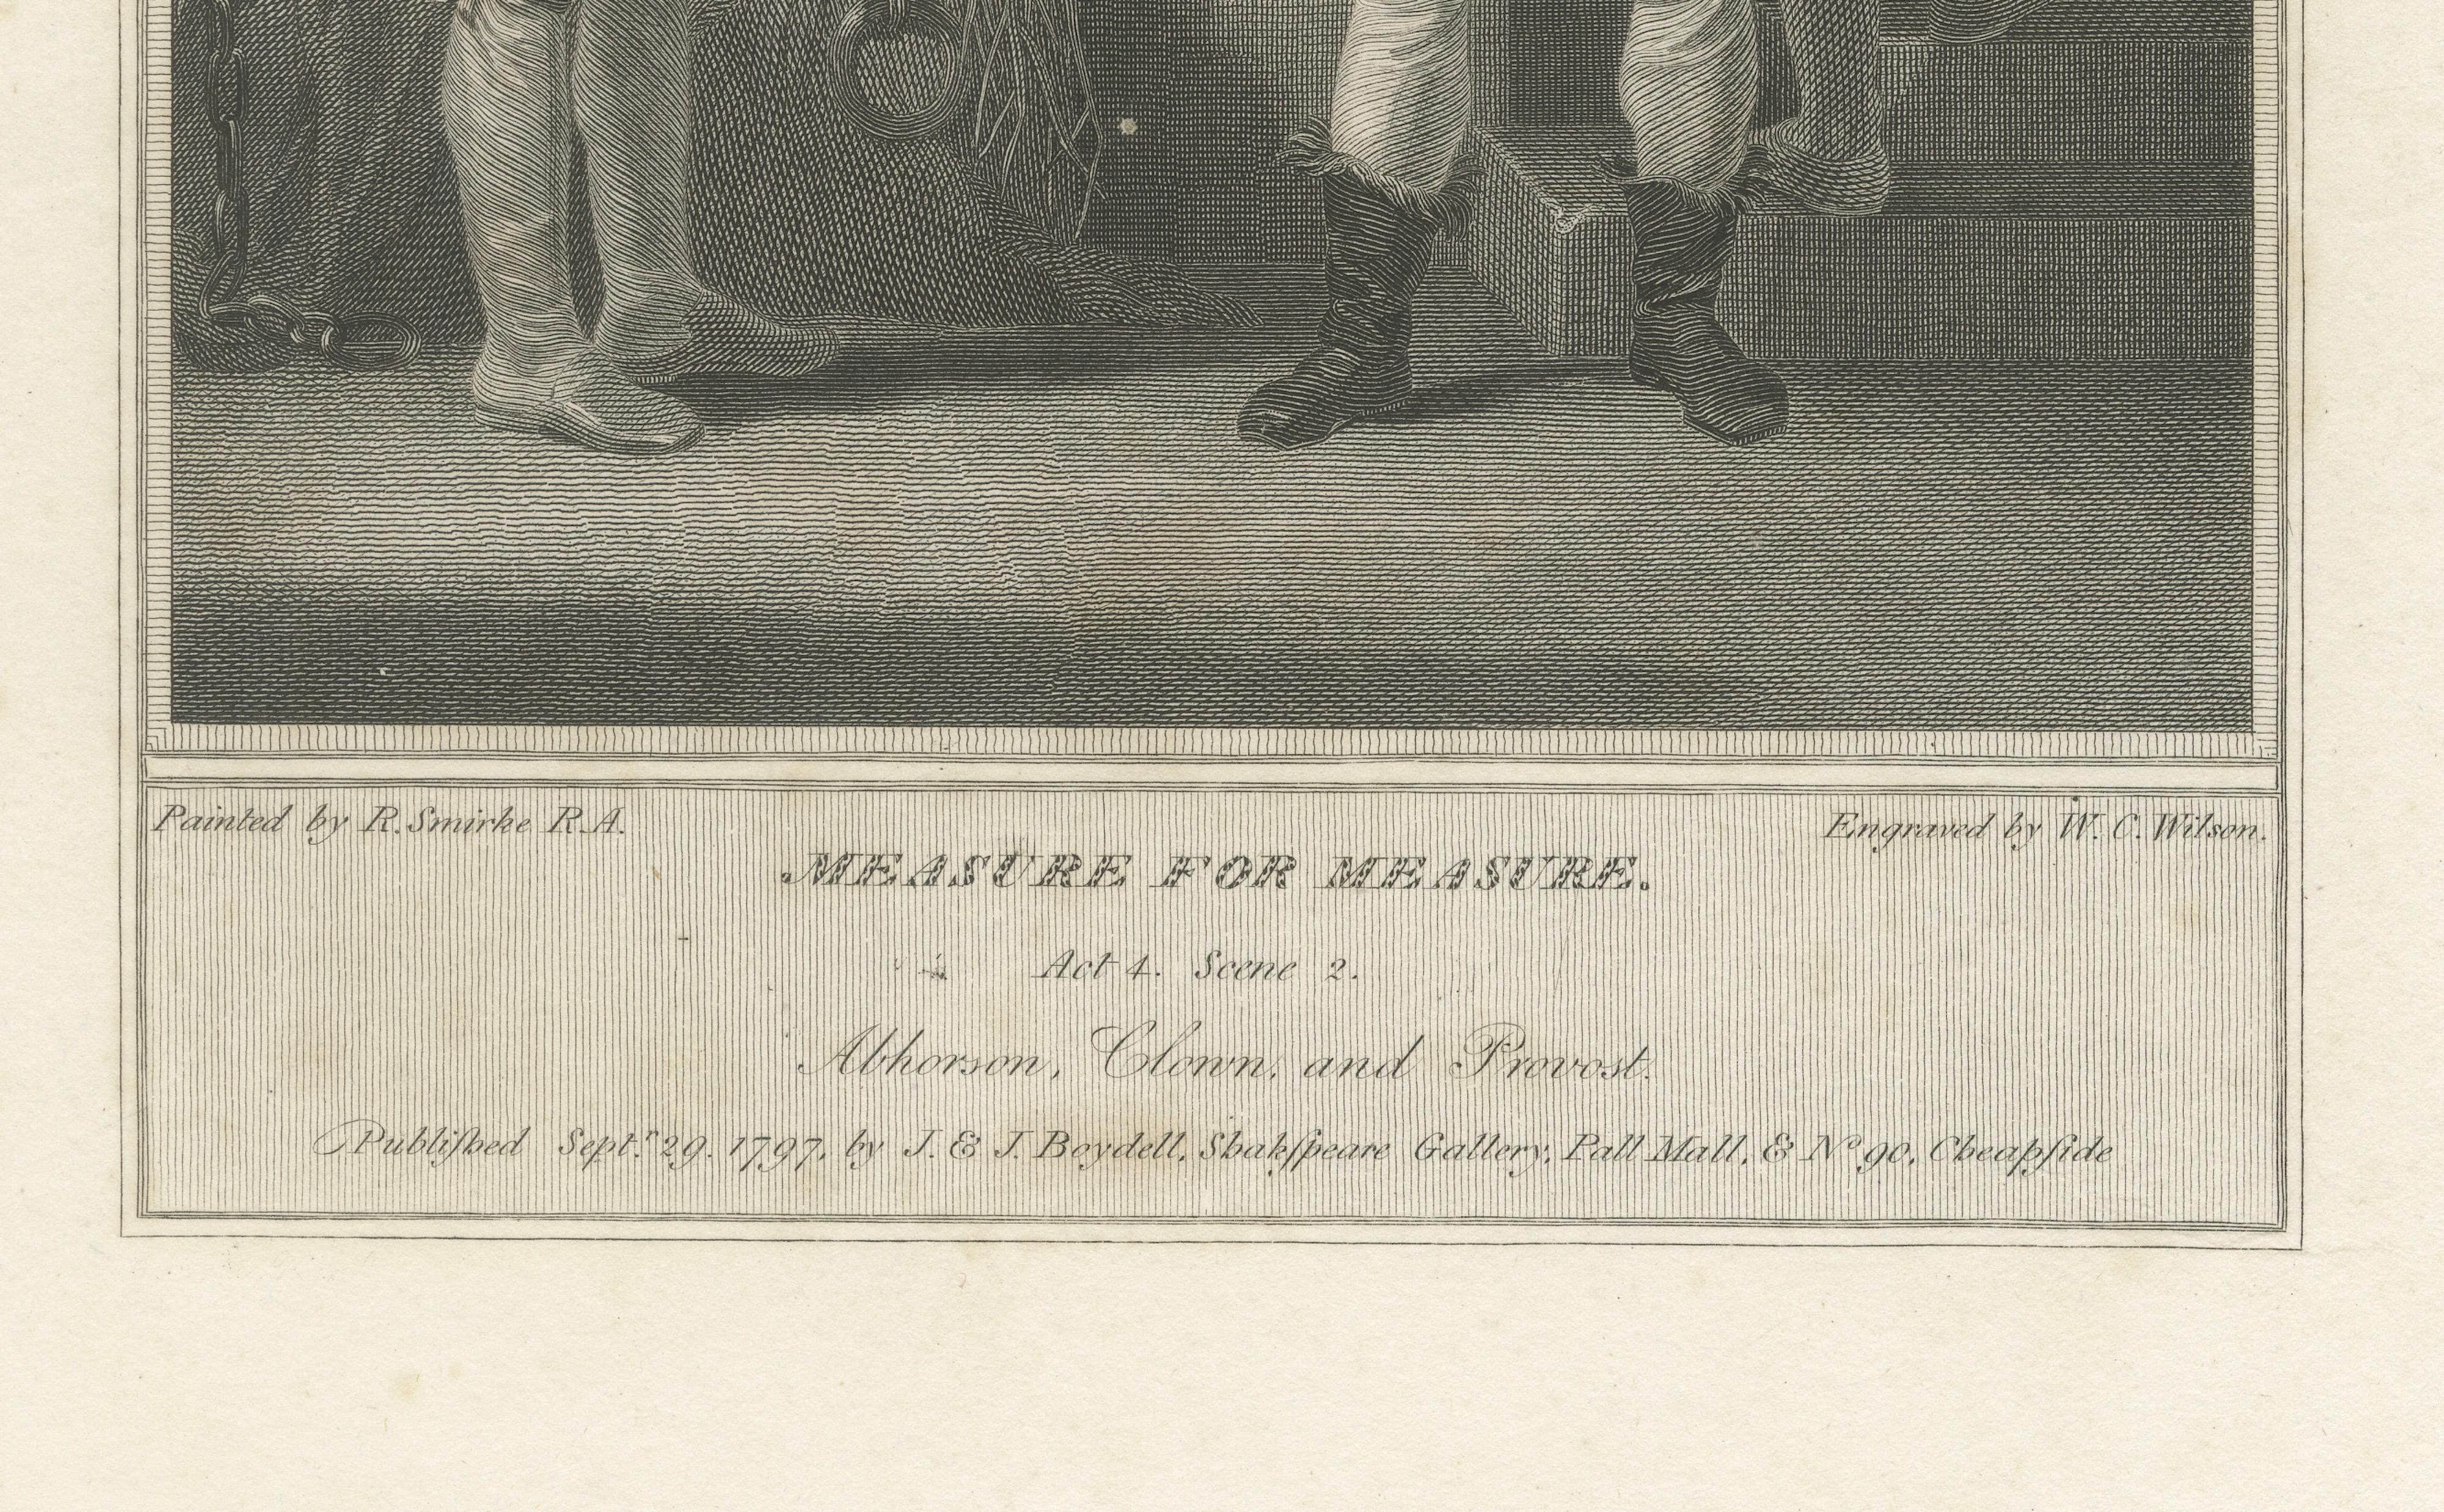 Painted by R. Smirke R.A.
Engraved by W. C. Wilson.
MEASURE FOR MEASURE.
Act 4. Scene 2.
Abhorson, Clown, and Provost.
Publiſhed Septr. 29. 1797, by J. & J. Boydell, Shakſpeare Gallery, Pall Mall, & No 90, Cheapſide